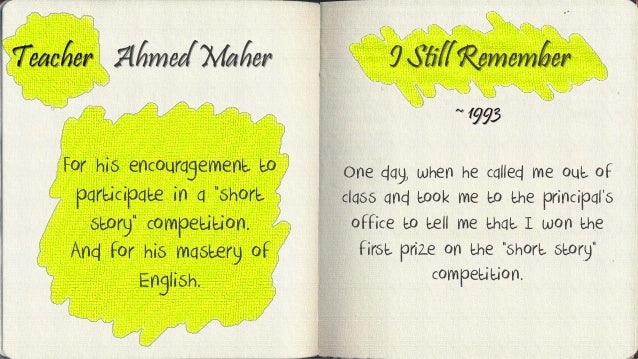 Teacher Ahmed Maher
For his encouragement to
participate in a "short
story" competition.
And for his mastery of
English.
I Still Remember
~ 1993
One day, when he called me out of
class and took me to the principal's
office to tell me that I won the
first prize on the "short story"
competition.